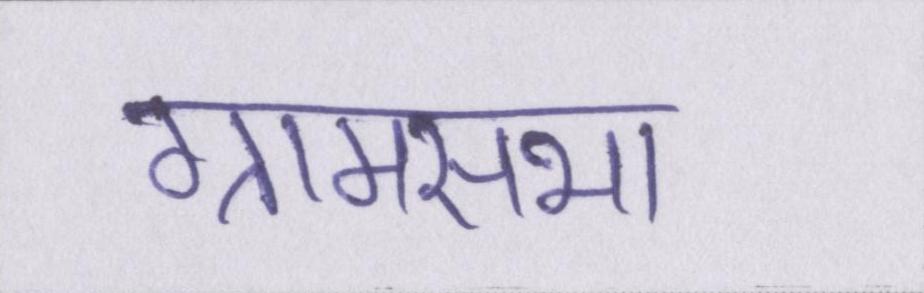 ग्रामसभा